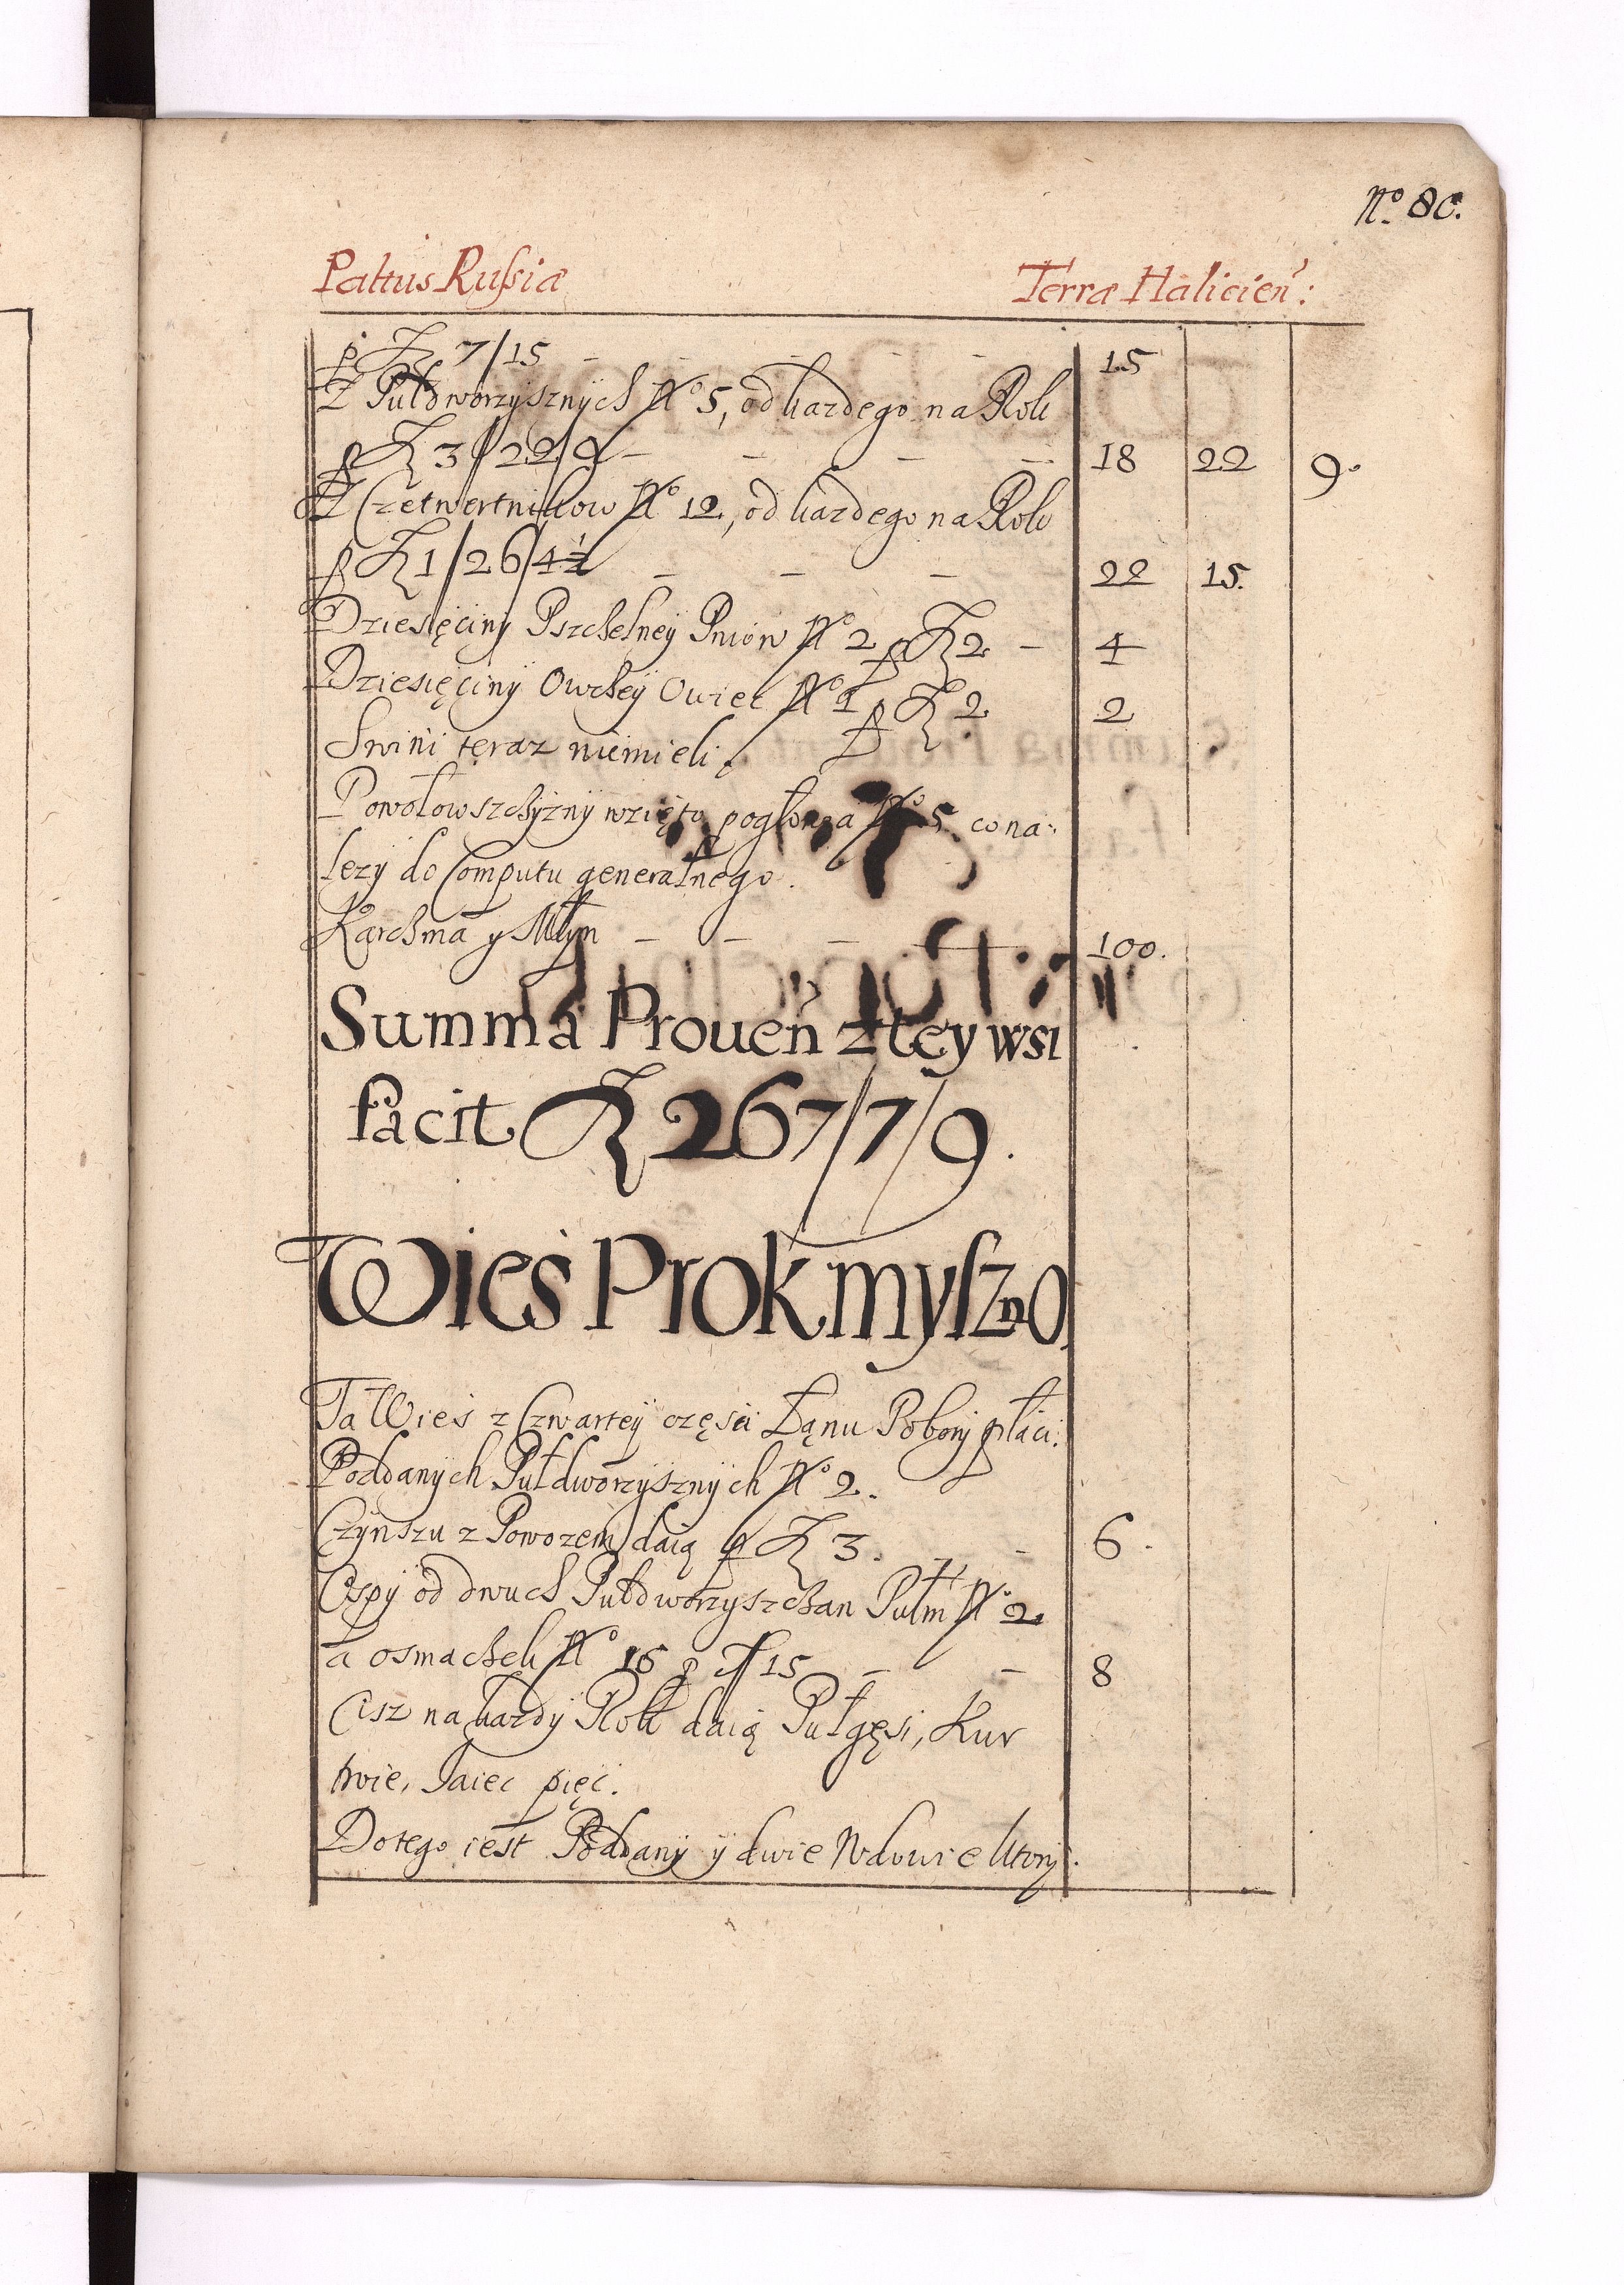 No. 80.
Pałtus Russiæ Terræ Halicień:
p Zł 7/15 – – – – 15
Z Pułdworzysznych No 5, od kazdego na Rok
p Zł 3/22/9 – – – – 18 22 9.
Z Czetwertnikow No 12, od kazdego na Rok
p Zł 1/26/4½ – – – 22 15.
Dziesięciny Pszchelney Pniow No 2 p Zł 2 – 4
Dziesięciny Owchey Owiec No 1 p Zł 2 2
Swini teraz niemieli.
Powołowszchyzny wzięto pogłowia No 5 co na:
lezy do Computu generalnego.
Karchma y Młyn – – – – 100.
Summa Proueń z tey wsi
facit Zł 267/7/9.
Wieś Prokmyszno
Ta Wieś z Czwartey części Łanu Pobory płaci.
Poddanych Pułdworzysznych No 2.
Czynszu z Powozem daią p Zł 3. – 6.
Ospy od dwuch Pułdworzyszchan Pułm No 2
a osmachek No 16 p ... 15 – – 8
Cisz na kazdy Rok daią Pułgęsi, Kur
trwie, Jaiec pięć.
Dotego iest Poddany y dwie Wdowie ktory.